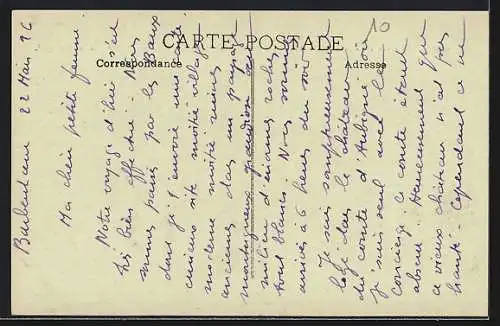 CARTE POSTALE
Correspondance
Adresse
10
Barbentane 22 Mars 26
Ma chère petite femme
Notre voyage d'hier s'est
très bien effectué. Nous
sommes passés par les Baux
dont je t'envoie une carte
curieux site moitié village
moderne moitié ruines
anciennes dans un paysage
montagneux grandiose au
milieu d'énormes roches
tout blancs. Nous sommes
arrivés à 6 heures du soir
Je suis somptueusement
logé dans le château
du comte d'Aubigné où
je suis seul avec le
concierge, le comte étant
absent. Heureusement que
ce vieux château n'est pas
hanté. Cependant ce